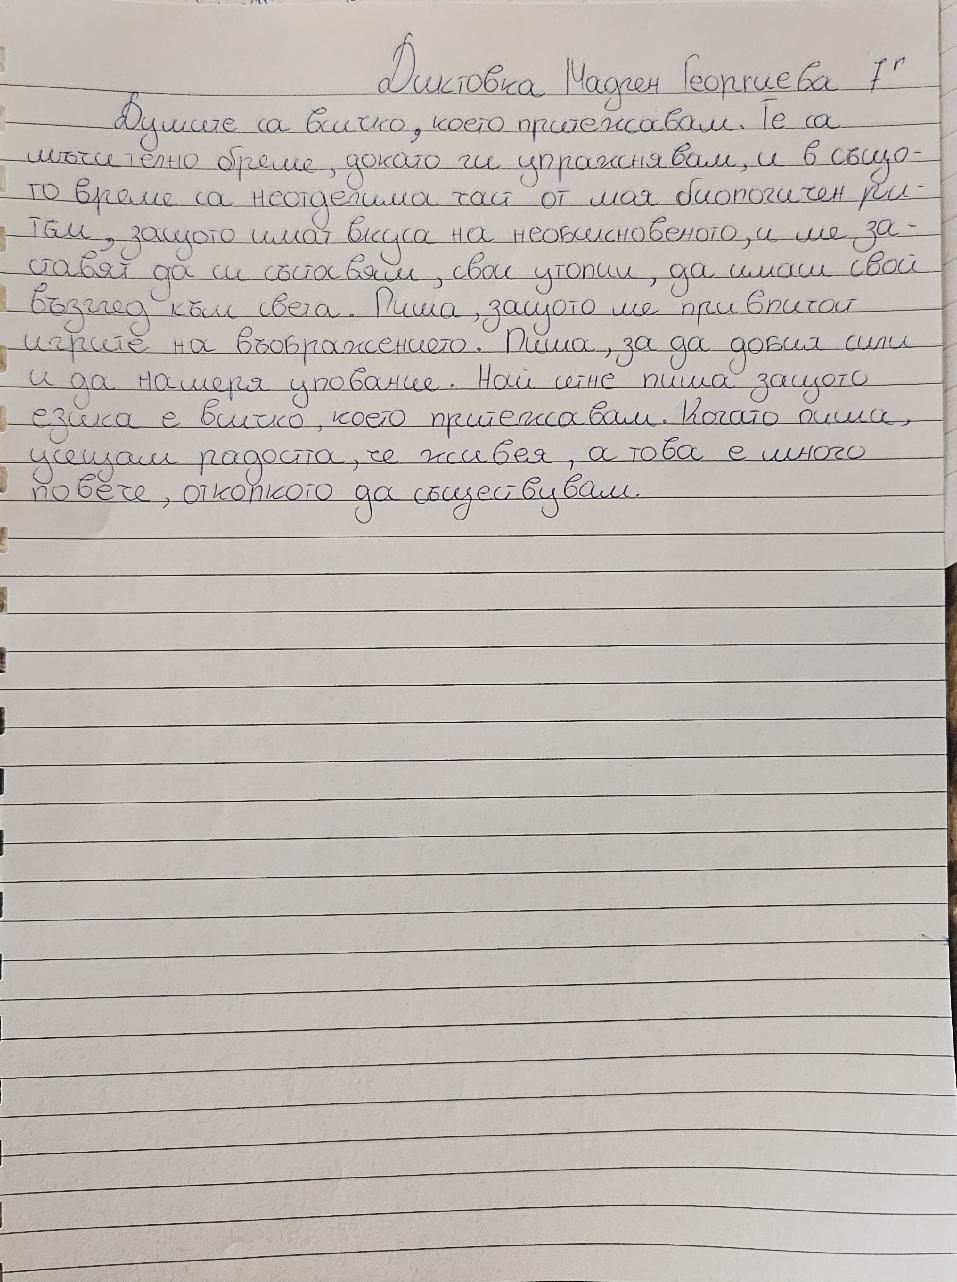 Диктовка Мадлен Георгиева Iг
Думите са всичко, което притежавам. Те са
мъчително бреме, докато ги упражнявам, и в също-
то време са неотделима част от моя биологичен ри-
тъм, защото имат вкуса на необикновеното, и ме за-
ставят да си съставям, свои утопии, да имам свой
възглед към света. Пиша, защото ме привличат
игрите на въображението. Пиша, за да добия сили
и да намеря упование. Най сетне пиша защото
езика е всичко, което притежавам. Когато пиша,
усещам радостта, че живея, а това е много
повече, отколкото да съществувам.